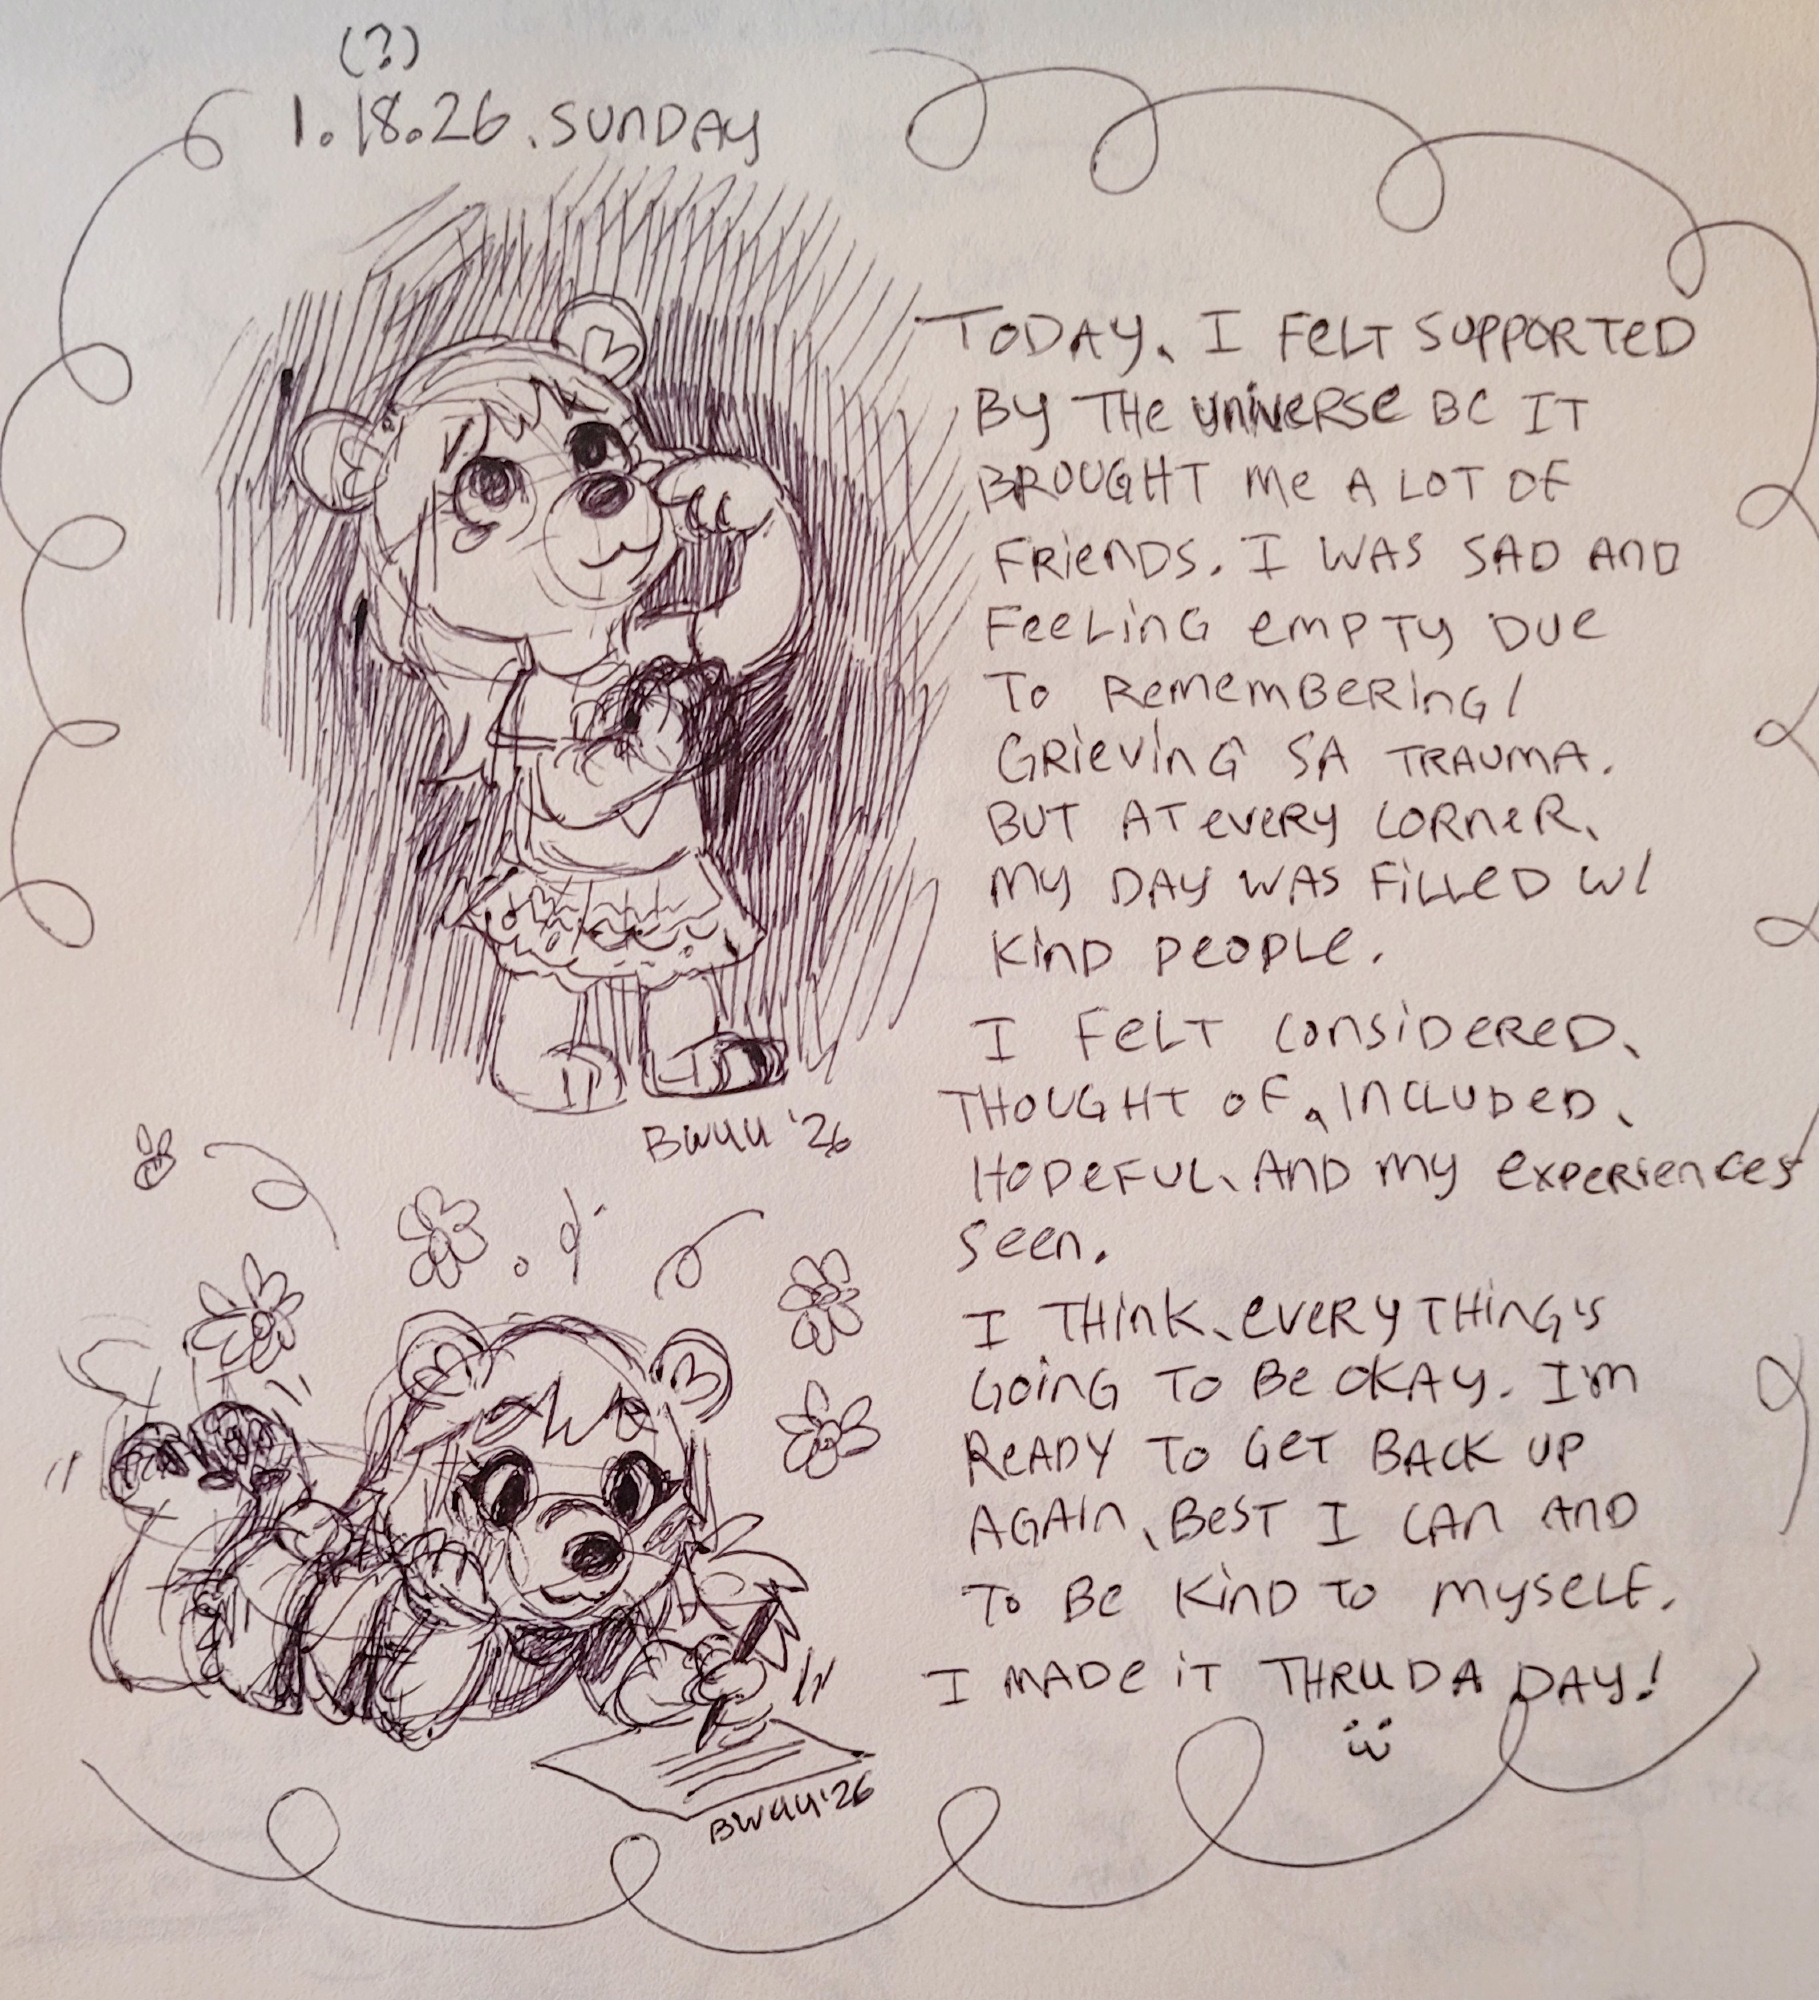 (?)
1.18.26. SUNDAY
TODAY, I FELT SUPPORTED
BY THE UNIVERSE BC IT
BROUGHT ME A LOT OF
FRIENDS. I WAS SAD AND
FEELING EMPTY DUE
TO REMEMBERING/
GRIEVING SA TRAUMA.
BUT AT EVERY CORNER,
MY DAY WAS FILLED W/
KIND PEOPLE.
I FELT CONSIDERED,
THOUGHT OF, INCLUDED,
HOPEFUL, AND MY EXPERIENCES
SEEN.
I THINK, EVERYTHING'S
GOING TO BE OKAY. I'M
READY TO GET BACK UP
AGAIN, BEST I CAN AND
TO BE KIND TO MYSELF.
I MADE IT THRU DA DAY!
BWUU '26
BWUU '26